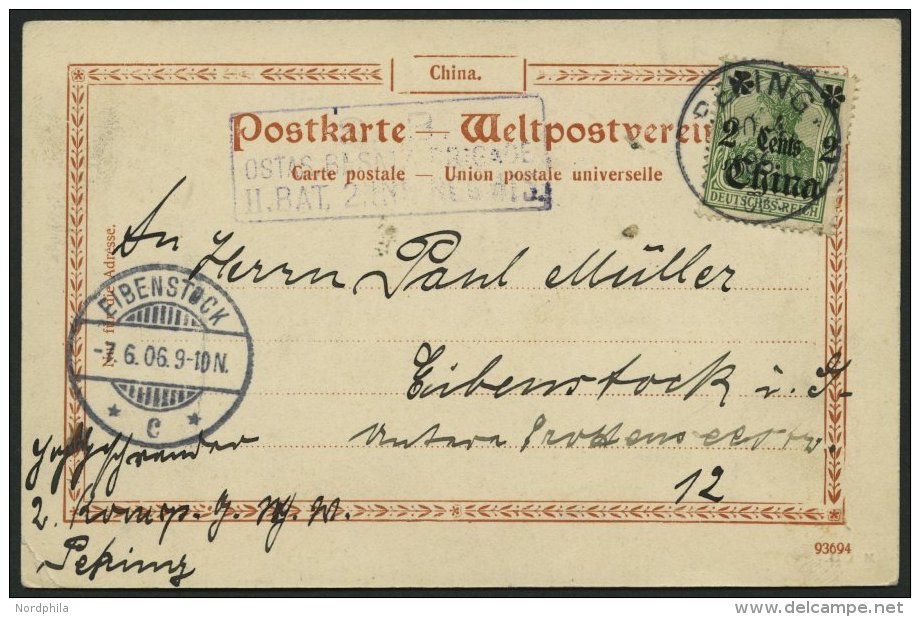 China.
Postkarte — Weltpostverein
Carte postale — Union postale universelle
OSTAS.
II. BAT. 2.
PEKING
2 Cents 2
China
DEUTSCHES REICH
An Herrn Paul Müller
Eibenstock i. S.
Untere
12
Nur für die Adresse.
EIBENSTOCK
-7.6.06.9-10N.
C
2. Komp.
Peking
93694
Nordphila
delcampe.net